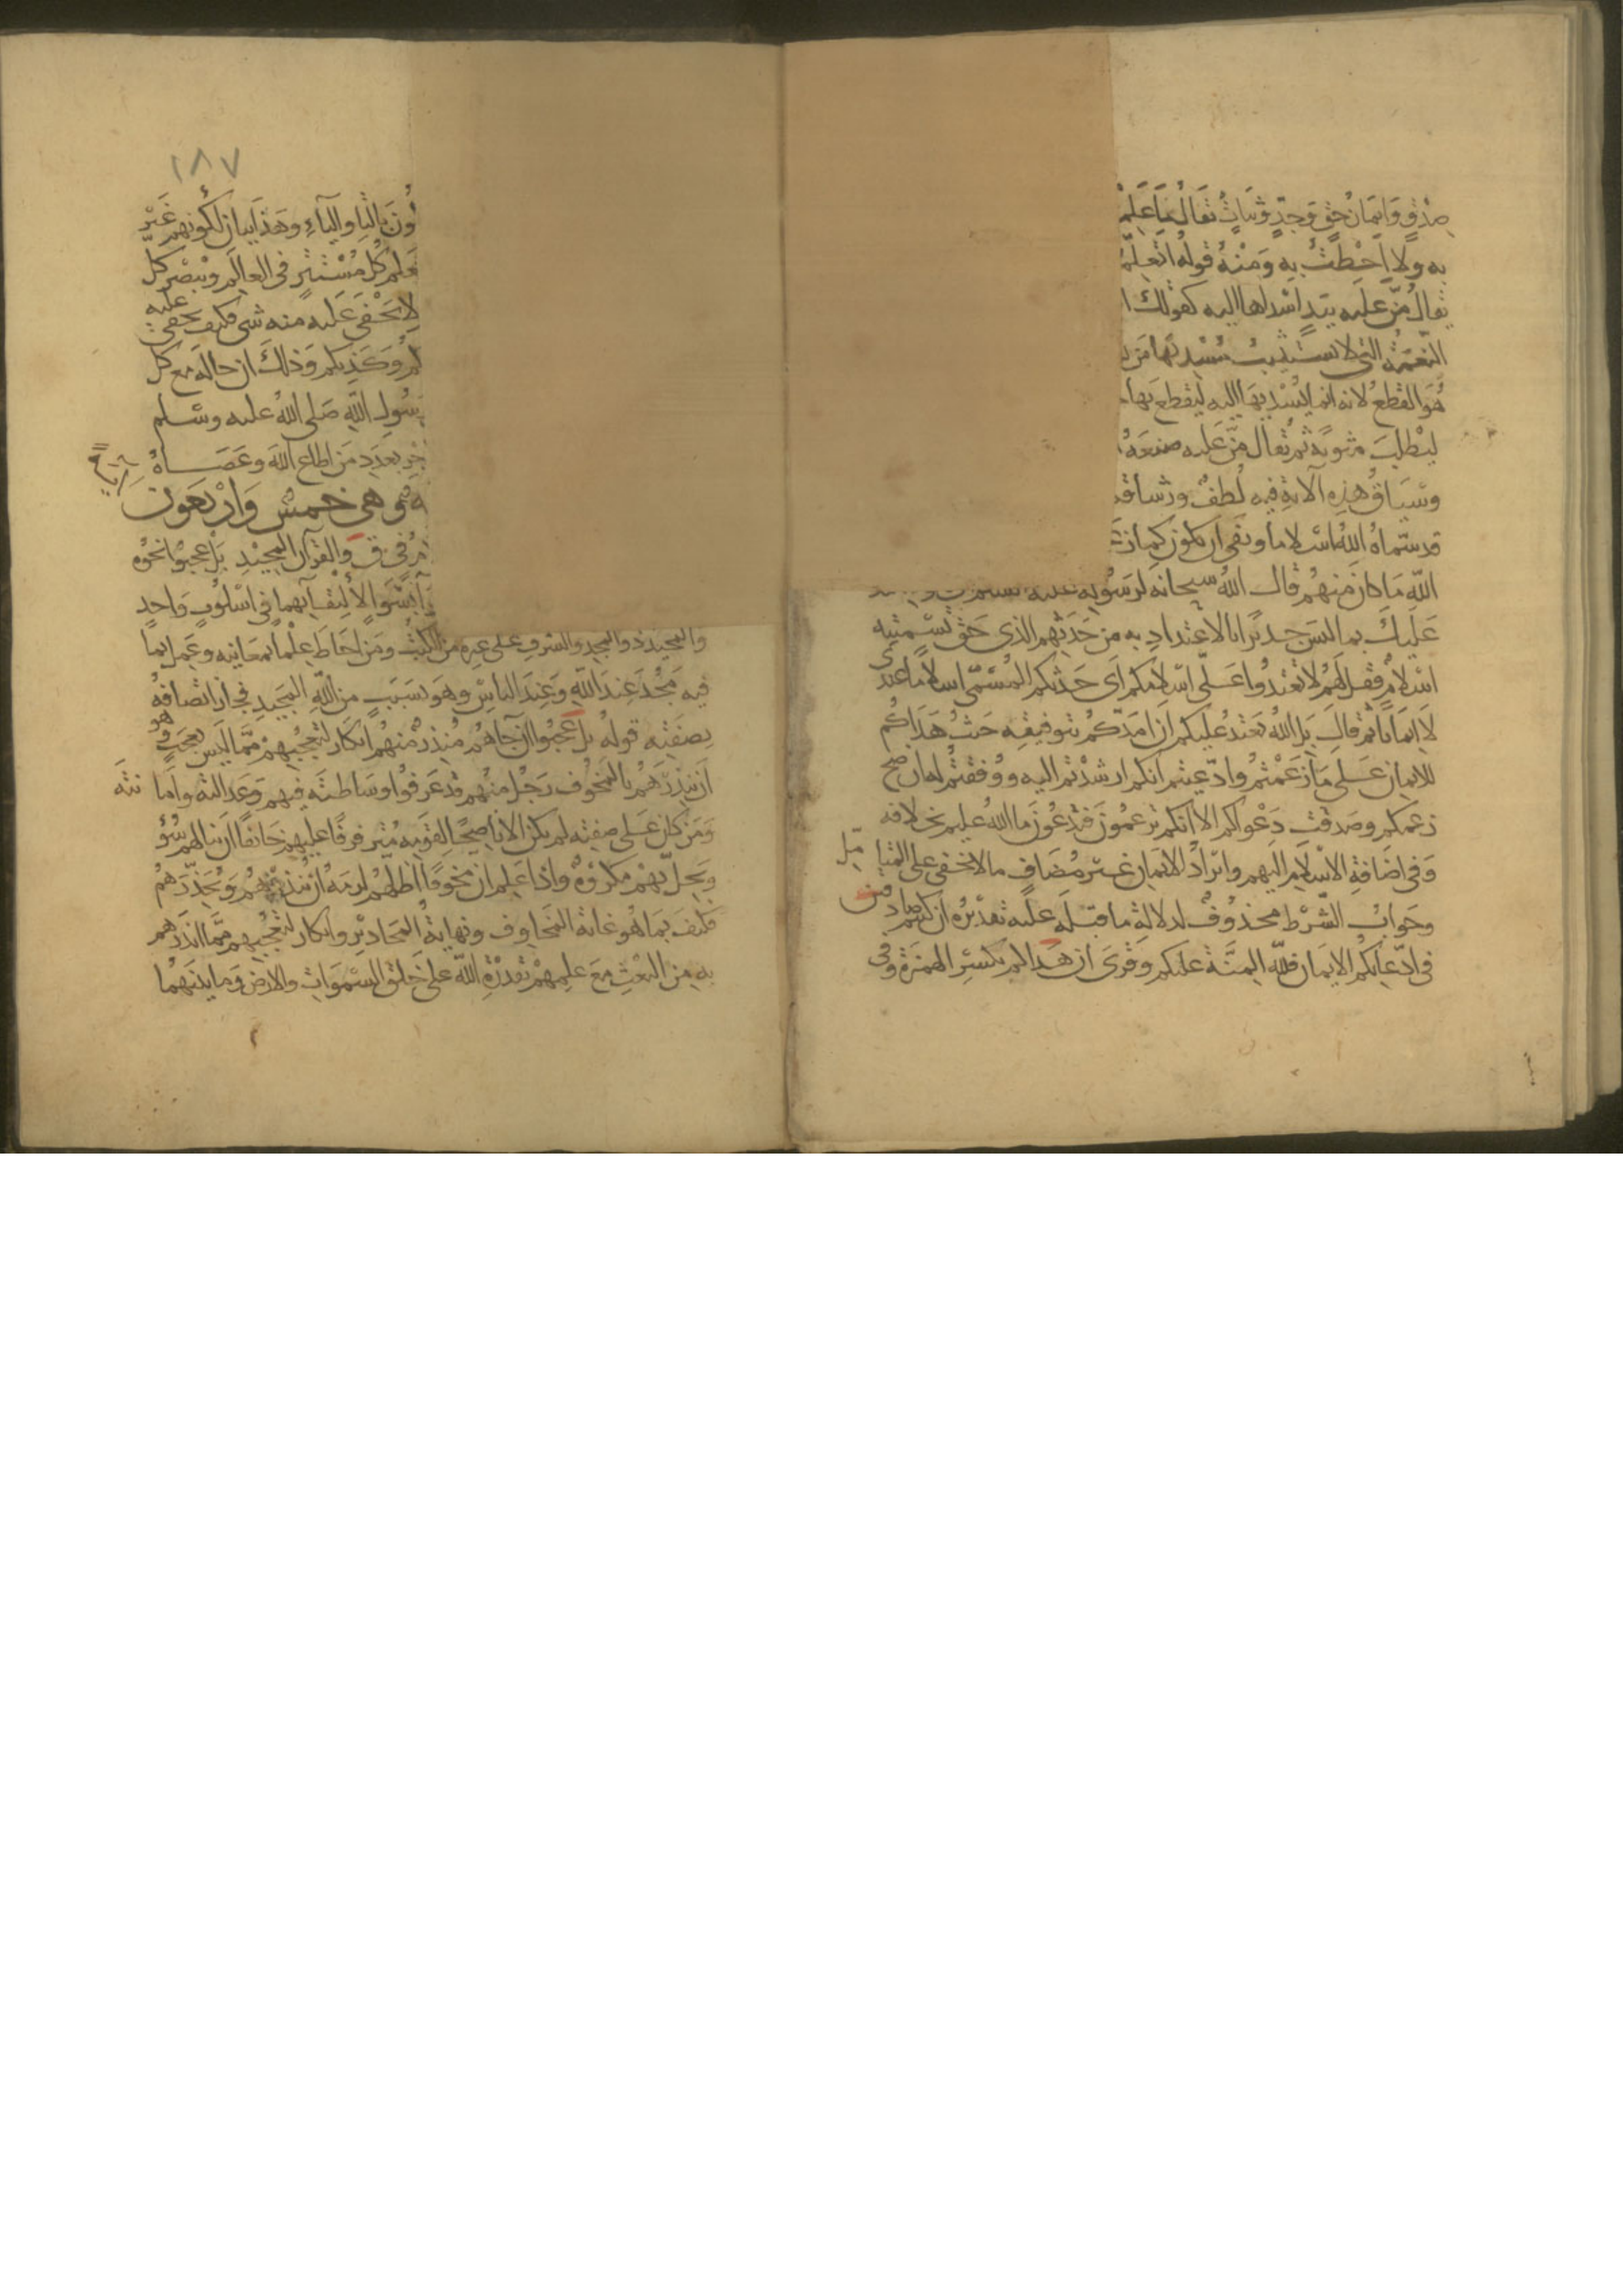 صدق وايمان حق وجد وثبات يقال ما علم
به ولا احطت به ومنه قوله اتعلمـ
يقال من عليه بيد اسداها اليه كقولك ا
النعمة التى لا يستثيب مسديها من
هو القطع لانه انما يسديها اليه ليقطع بها
ليطلب مثوبة ثم يقال من عليه صنعه
وسياق هذه الآية فيه لطف ورشاقة
قد سماه الله اسلاما ونفى ان يكون كما
الله ما كان منهم قال الله سبحانه لرسوله عليه
عليك بما ليس جديرا بالاعتداد به من حدثهم الذى حق تسميته
اسلام فقل لهم لا تعتدوا على اسلامكم اى حدثكم المسمى اسلاما عندى
لا ايمانا ثم قال بل الله يعتد عليكم ان امدكم بتوفيقه حيث هداكم
للايمان على ما زعمتم وادعيتم انكم ارشدتم اليه ووفقتم له ان صح
زعمكم وصدقت دعواكم الا انكم تزعمون وتدعون ما الله عليم بخلافه
وفى اضافة الاسلام اليهم وايراد الايمان غير مضاف ما لا يخفى على المتامل
وجواب الشرط محذوف لدلالة ما قبله عليه تقديره ان كنتم صادقين
فى ادعائكم الايمان فلله المنة عليكم وقرى ان هداكم بكسر الهمزة وفى
١٨٧
ون بالتا والياء وهذا بيان لكونهم غير
يعلم كل مستتر فى العالم ويبصر كل
لا يخفى عليه منه شى فكيف يخفى عليه
كم وكذبكم وذلك ان حاله مع كل
رسول الله صلى الله عليه وسلم
جر بعدد من اطاع الله وعصاه
وهى خمس واربعون
فى ق والقرآن المجيد بل عجبوا نحوه
سوا لالتقائهما فى اسلوب واحد
والمجيد ذو المجد والشرف على غيره من الكتب ومن احاط علما بمعانيه وعمل بما
فيه مجد عند الله وعند الناس وهو بسبب من الله المجيد فجاز اتصافه
بصفته قوله بل عجبوا ان جاهم منذر منهم انكار لتعجبهم مما ليس بعجب وهو
ان ينذرهم بالمخوف رجل منهم قد عرفوا وساطته فيهم وعدالته وامانته
ومن كان على صفته لم يكن الا ناصحا لقومه مترفرفا عليهم خائفا ان ينالهم سؤ
ويحل بهم مكروه واذا علم ان مخوفا اظلهم لزمه ان ينذرهم ويحذرهم
فكيف بما هو غاية المخاوف ونهاية المحاذير وانكار لتعجبهم مما انذرهم
به من البعث مع علمهم بقدرة الله على خلق السموات والارض وما بينهما